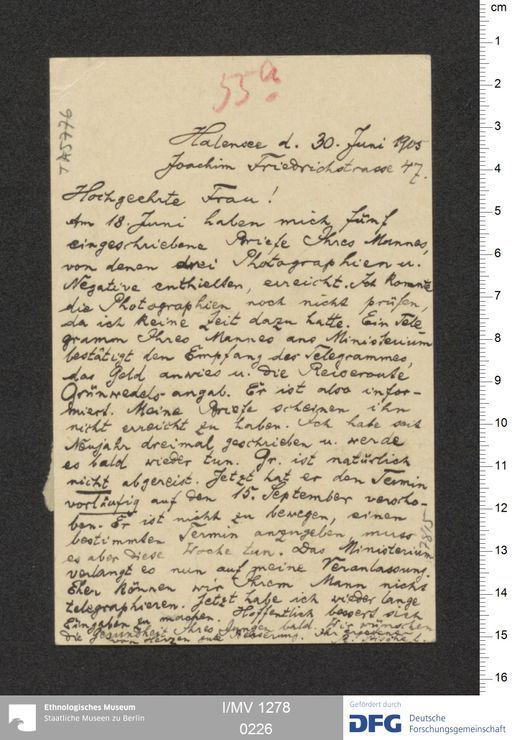 55a
TA5776
Halensee d. 30. Juni 1905
Joachim Friedrichstrasse 47.
Hochgeehrte Frau!
Am 18. Juni haben mich fünf
eingeschriebene Briefe Ihres Mannes,
von denen drei Photographien u.
Negative enthielten, erreicht. Ich konnte
die Photographien noch nicht prüfen,
da ich keine Zeit dazu hatte. Ein Tele-
gramm Ihres Mannes ans Ministerium
bestätigt den Empfang des Telegrammes,
das Geld anwies u. die Reiseroute
Grünwedels angab. Er ist also infor-
miert. Meine Briefe scheinen ihn
nicht erreicht zu haben. Ich habe seit
Neujahr dreimal geschrieben u. werde
es bald wieder tun. Gr. ist natürlich
nicht abgereist. Jetzt hat er den Termin
vorläufig auf den 15. September verscho-
ben. Er ist nicht zu bewegen, einen
bestimmten Termin anzugeben, muss
es aber diese Woche tun. Das Ministerium
verlangt es nun auf meine Veranlassung.
Eher können wir Ihrem Mann nicht
telegraphieren. Jetzt habe ich wieder lange
Eingaben zu machen. Hoffentlich bessert sich
die Gesundheit Ihres Jungen bald. Wir wünschen
von Herzen gute Besserung. Ihr ergebener
cm
1
2
3
4
5
6
7
8
9
10
11
12
13
14
15
16
Ethnologisches Museum
Staatliche Museen zu Berlin
I/MV 1278
0226
Gefördert durch
DFG
Deutsche
Forschungsgemeinschaft